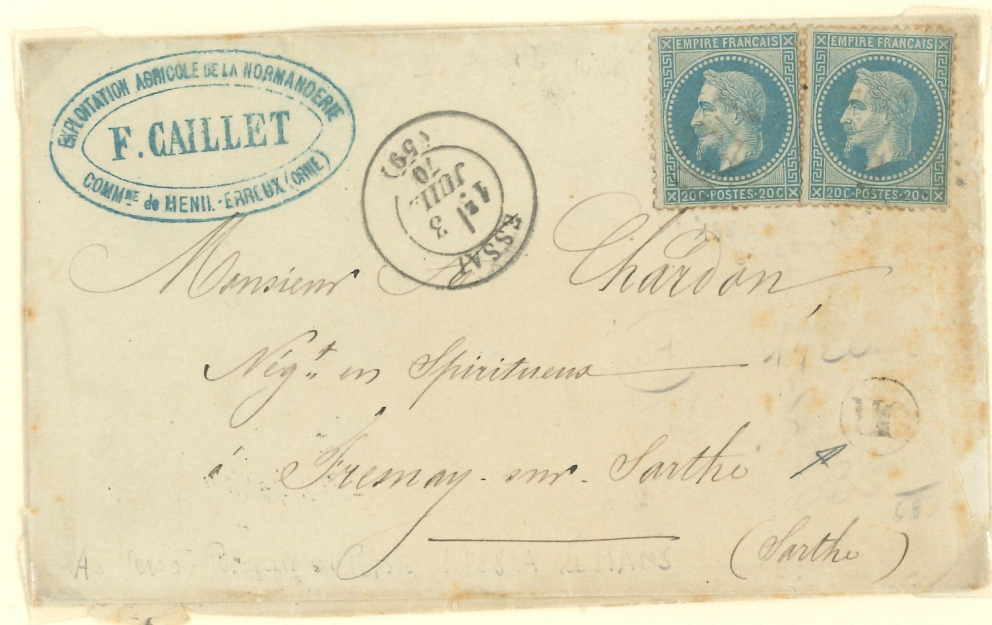 EXPLOITATION AGRICOLE DE LA NORMANDERIE
F. CAILLET
COMMNE de MENIL-ERREUX (ORNE)
EMPIRE FRANÇAIS
20C-POSTES-20C
EMPIRE FRANÇAIS
20C-POSTES-20C
ESSAY
3
JUIL.
70
(59)
Monsieur Chardon,
Négt en Spiritueux
à Fresnay-sur-Sarthe
(Sarthe)